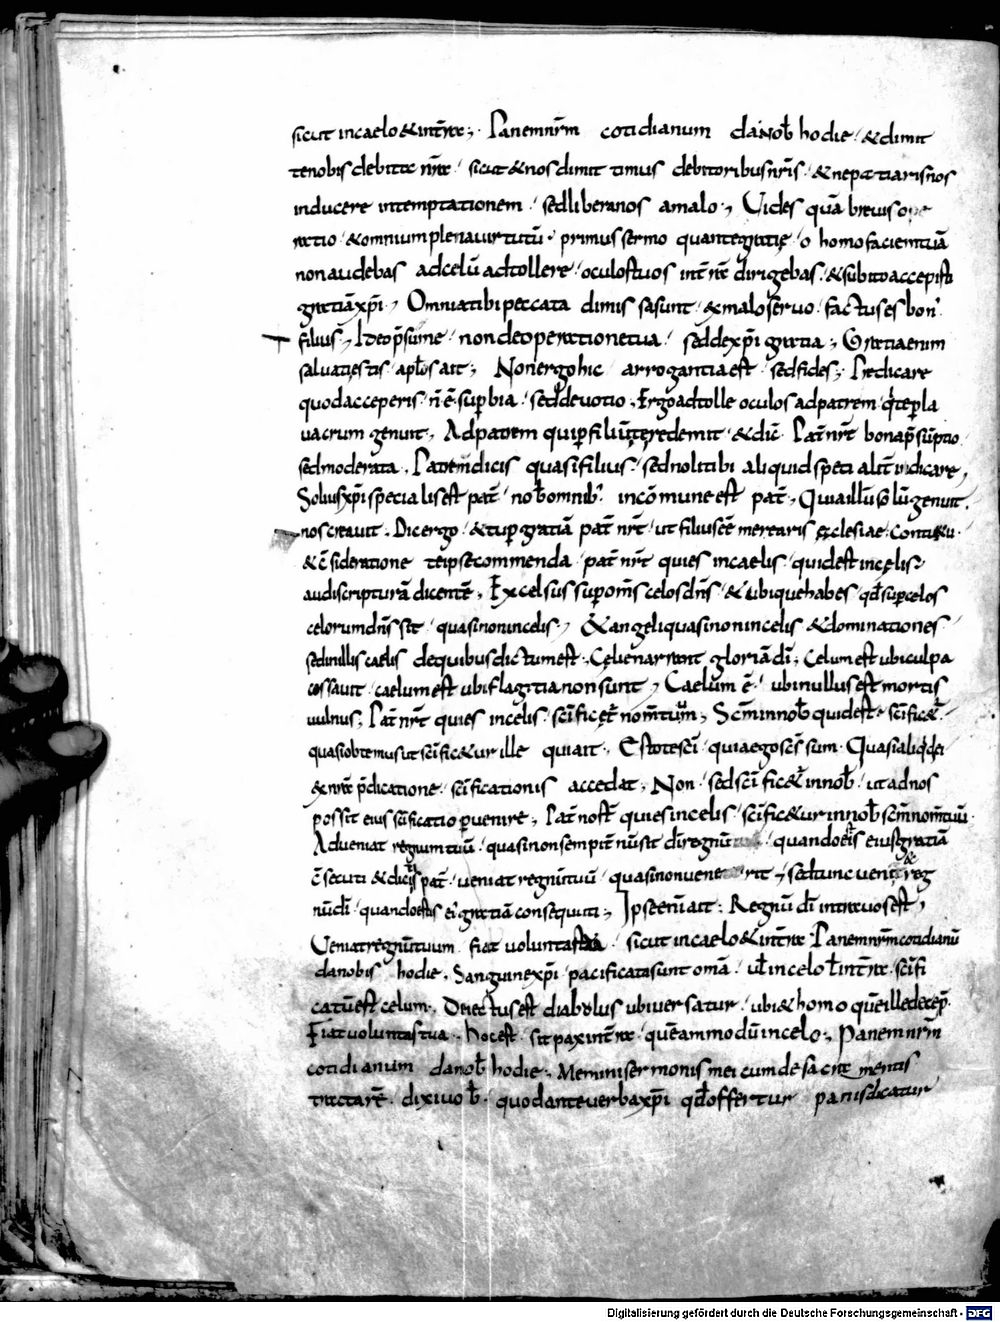 sicut incaelo & inteꝛra; Panemnrm̄ cotidianum danob̄ hodie & dimit
tenobis debita nr̄a sicut & nos dimit timus debitoribus nr̄is & nepatiaris nos
inducere intemptationem sed liberanos amalo; Uides quā brevis o
ratio & omnium plena virtutū primus sermo quante gratiȩ o homo faciem tuā
non audebas ad celū adtollere oculos tuos inter̄ra dirigebas & subito accepisti
gratiā xp̄i; Omnia tibi peccata dimissa sunt & malo servo factus es bon'
filius; Ideo p̄sume non de operatione tua sed de xp̄i gratia; Gratia enim
salvati estis apl̄os ait; Non ergo hic arrogantia est sed fides; Predicare
quod acceperis n̄ ē supbia sed devotio. Ergo adtolle oculos ad patrem q te pla
vacrum genuit; Ad patrem qui p filiū te redemit & dic̄ Pat̄ nr̄ bona p̄sūptio
sed moderata. Patrem dicis quasi filius sed noli tibi aliquid speti alit̄ vindicare,
Solius xp̄i specialis est pat̄ nob̄ omnib' incōmune est pat̄; Quia illū solū genuit.
nos creavit. Dic ergo & tu p gratiā pat̄ nr̄ ut filius eē merearis ȩcclesiae
& c̄sideratione te ipse commenda pat̄ nr̄ qui es incaelis quid est in cȩlis
audi scripturā dicentē; Excelsus sup om̄s celos dn̄s & ubique habes qd̄ sup celos
celorum dn̄s sit quasi non in celis; & angeli quasi non in celis & dominationes
sed in illis caelis de quibus dictum est; Cȩli enarrant gloriā dī; Celum est ubi culpa
cessavit caelum est ubi flagitia non sunt; Caelum ē ubi nullus est mortis
vulnus; Pat̄ nr̄ qui es incelis sc̄ificȩt̄ nom̄ tuum; Sc̄m in nob̄ quid est sc̄ific&̄
quasi obtemus ut sc̄ific&ur ille qui ait; Estote sc̄i quia ego sc̄s sum Quasi aliqd ei
& nr̄a p̄dicatione sc̄ificationis accedat; Non sed sc̄ific&̄ in nob̄ ut ad nos
possit eius sc̄ificatio pvenire; Pat̄ nost̄ qui es incelis sc̄ific&ur in nob̄ sc̄m nom̄ tuū
Adveniat regnum tuū quasi non sempit̄nū sit dī regnū quando estis eius gratiā
c̄secuti & dicis pat̄ veniat regnū tuū quasi non vene rit; sed tunc venit reg
nū dī quando estis ei' gratiā consequuti; Ipse enī ait Regnū dī intra vos est;
Ueniat regnū tuum fiat voluntas tua sicut incaelo & inter̄ra Panem nrm̄ cotidianū
danobis hodie. Sanguine xp̄i pacificata sunt omā vl̄ incelo l̄ inter̄ra sc̄ifi
catū est celum. Deiectus est diabolus ubi versatur ubi & homo quē ille decep̄.
Fiat voluntas tua. Hoc est sit pax inter̄ra quēammodū incelo; Panem nrm̄
cotidianum danob̄ hodie; Memini sermonis mei cum de sacra mentis
tractarē dixi vob̄ quod ante verba xp̄i qd̄ offertur panis dicatur
Digitalisierung gefördert durch die Deutsche Forschungsgemeinschaft - DFG